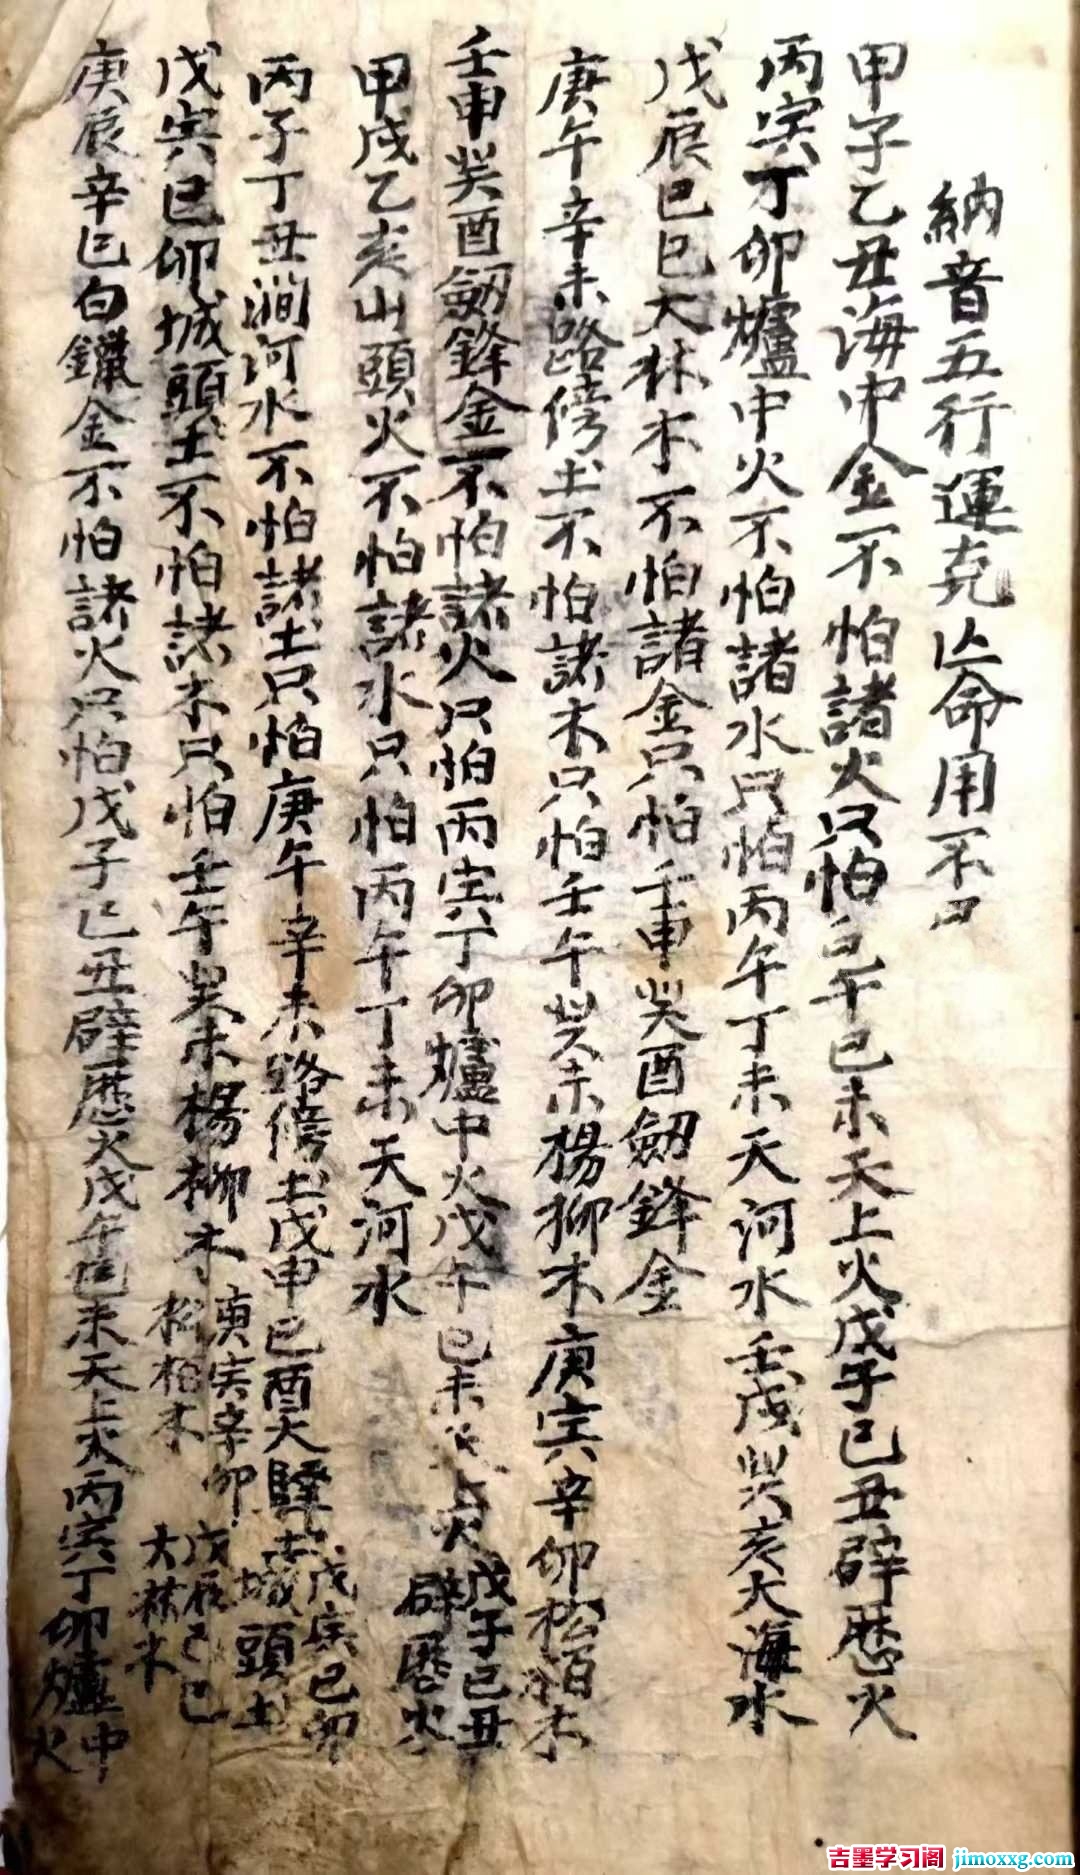 納音五行運克亡命用不
甲子乙丑海中金不怕諸火只怕戊午己未天上火戊子己丑辟歴火
丙寅丁卯爐中火不怕諸水只怕丙午丁未天河水壬戌癸亥大海水
戊辰己巳大林木不怕諸金只怕壬申癸酉劔鋒金
庚午辛未路傍土不怕諸木只怕壬午癸未楊柳木庚寅辛卯松栢木
壬申癸酉劔鋒金不怕諸火只怕丙寅丁卯爐中火戊午己未天上火戊子己丑辟歴火
甲戌乙亥山頭火不怕諸水只怕丙午丁未天河水
丙子丁丑澗河水不怕諸土只怕庚午辛未路傍土戊申己酉大驛土戊寅己卯城頭土
戊寅己卯城頭土不怕諸木只怕壬午癸未楊柳木庚寅辛卯松柏木戊辰己巳大林木
庚辰辛巳白鑞金不怕諸火只怕戊子己丑辟歴火戊午己未天上火丙寅丁卯爐中火
吉墨学习阁 jimoxxg.com